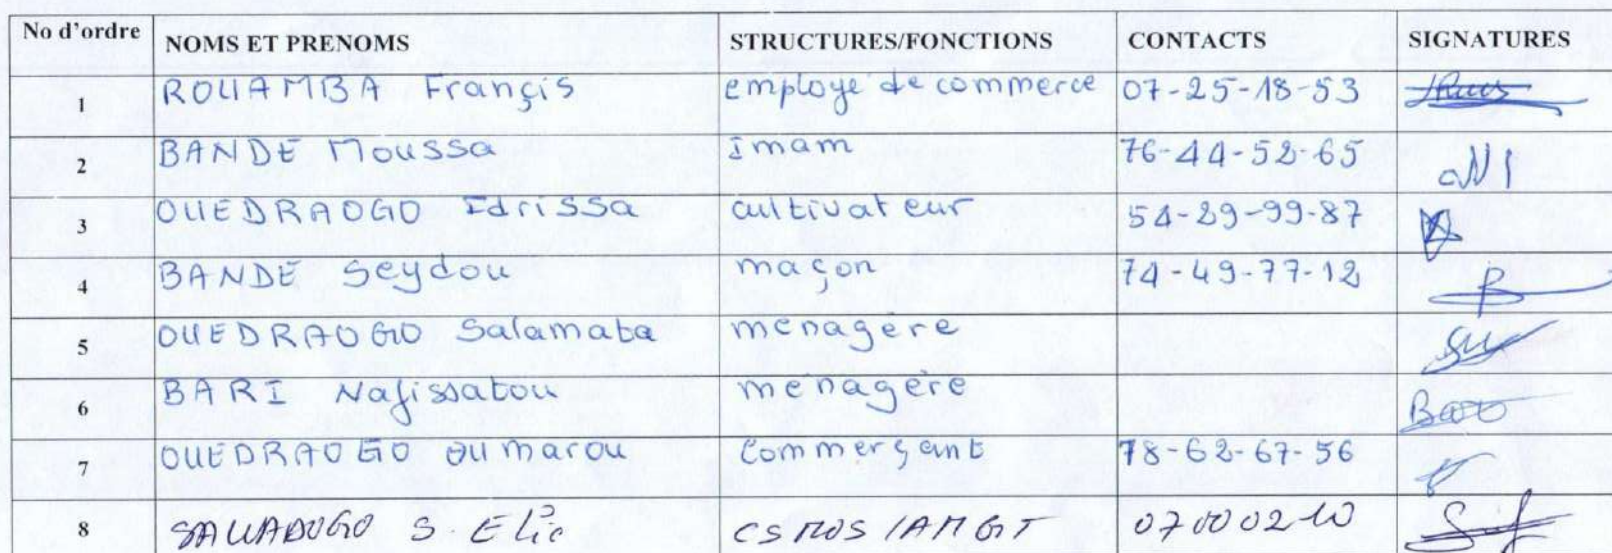 No d'ordre NOMS ET PRENOMS STRUCTURES/FONCTIONS CONTACTS SIGNATURES
1 ROUAMBA Françis employé de commerce 07-25-18-53
2 BANDE Moussa Imam 76-44-52-65
3 OUEDRAOGO Idrissa cultivateur 54-29-99-87
4 BANDE Seydou maçon 74-49-77-12
5 OUEDRAOGO Salamata menagère
6 BARI Nafissatou menagère
7 OUEDRAOGO Oumarou Commerçant 78-62-67-56
8 SAWADOGO S. Elie 07000210